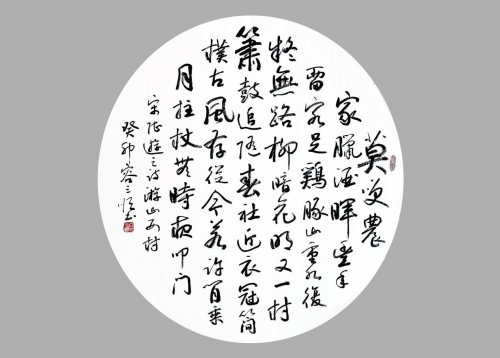 莫笑農
家臘酒渾豐年
留客足鷄豚山重水復
疑無路柳暗花明又一村
簫鼓追随春社近衣冠簡
樸古風存從今若許閒乘
月拄杖無時夜叩门
宋陸遊之詩游山西村
癸卯